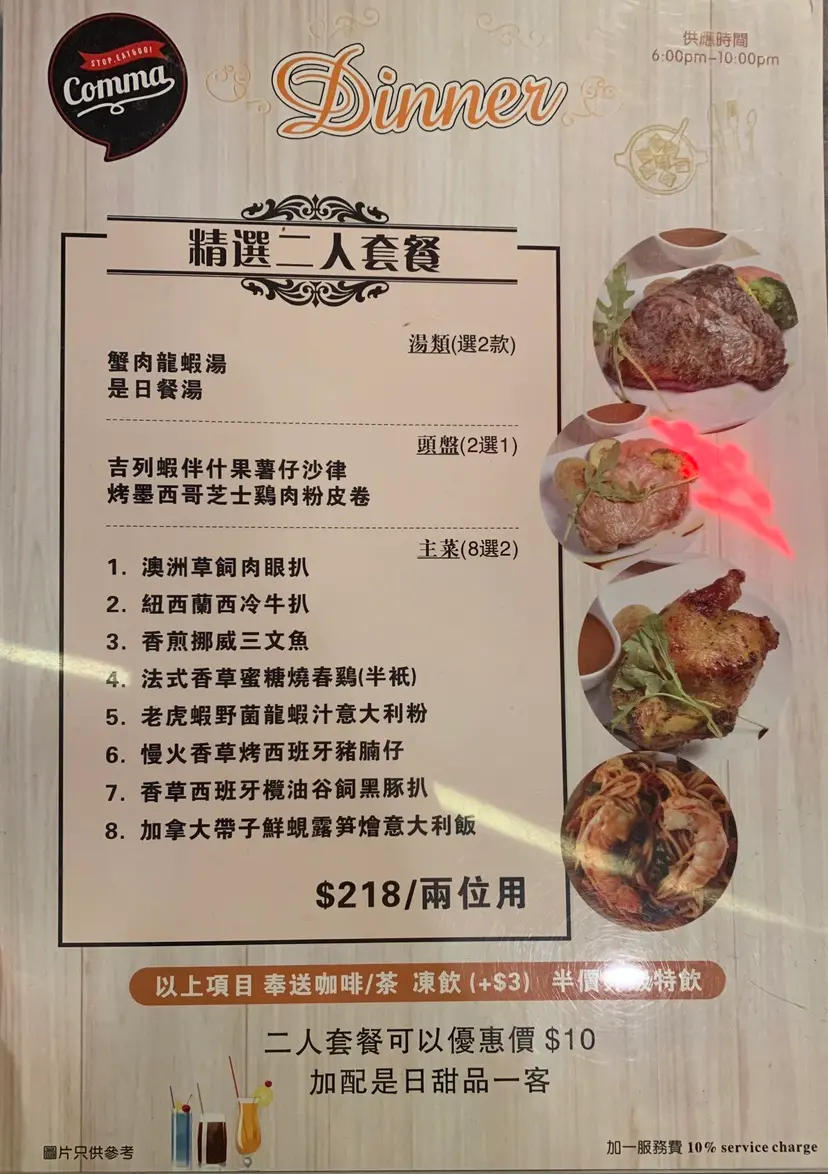 STOP.EAT&GO!
Comma
Dinner
供應時間
6:00pm-10:00pm
精選二人套餐
湯類(選2款)
蟹肉龍蝦湯
是日餐湯
頭盤(2選1)
吉列蝦伴什果薯仔沙律
烤墨西哥芝士鷄肉粉皮卷
主菜(8選2)
1. 澳洲草飼肉眼扒
2. 紐西蘭西冷牛扒
3. 香煎挪威三文魚
4. 法式香草蜜糖燒春鷄(半衹)
5. 老虎蝦野菌龍蝦汁意大利粉
6. 慢火香草烤西班牙豬腩仔
7. 香草西班牙欖油谷飼黑豚扒
8. 加拿大帶子鮮蜆露笋燴意大利飯
$218/兩位用
以上項目 奉送咖啡/茶 凍飲 (+$3) 半價 特飲
二人套餐可以優惠價 $10
加配是日甜品一客
圖片只供參考
加一服務費 10% service charge